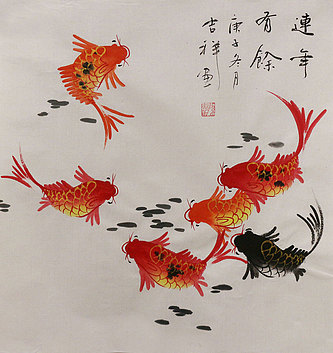 連年
有餘
庚子冬月
吉祥画